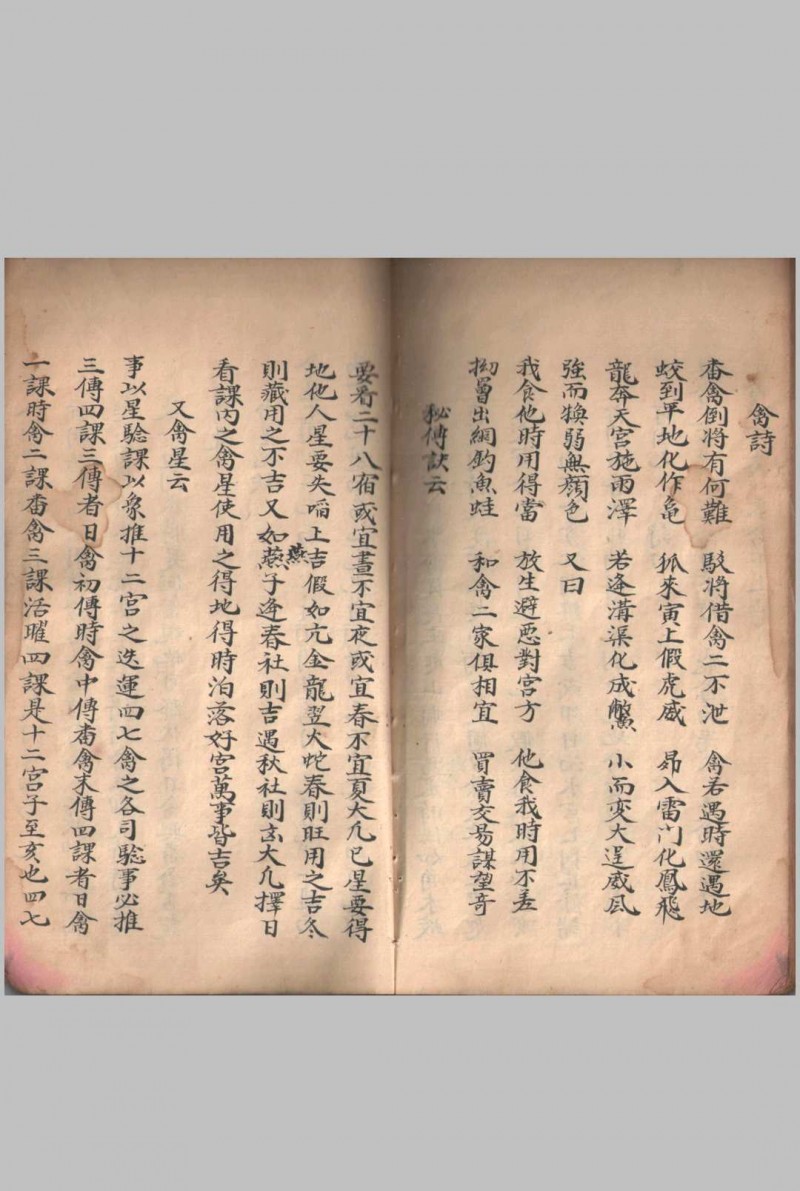 禽詩
畨禽倒將有何難　馭將借禽二不泄　禽若遇時還遇地
蛟到平地化作龟　狐來寅上假虎威　昴入雷门化鳳飛
龍奔天宮施雨澤　若逢溝渠化成鱉　小而变大逞威風
強而換弱無顔色　又曰
我食他時用得當　放生避惡對宮方　他食我時用不差
拗曾出網釣魚蛙　和禽二家俱相宜　買賣交易謀望奇
秘傳訣云
要看二十八宿或宜晝不宜夜或宜春不宜夏大凢已星要得
地他人星要失啗上吉假如亢金龍翌火蛇春則旺用之吉冬
則藏用之不吉又如燕子逢春社則吉遇秋社則玄大凢擇日
燕
看課內之禽星使用之得地得時泊落好宮萬事皆吉矣
又禽星云
事以星騐課以象推十二宮之迭運四七禽之各司騐事必推
三傳四課三傳者日禽初傳時禽中傳畨禽末傳四課者日禽
一課時禽二課畨禽三課活曜四課是十二宮子至亥也四七